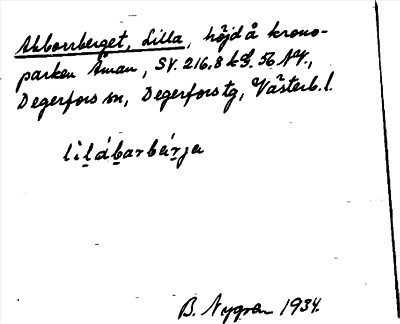 Abborrberget, Lilla, höjd å krono-
parken Åman, SV. 216,8 56 NV.,
Degerfors sn, Degerfors tg, Västerb. l.
lìlábarbárja
B. Nygren 1934.